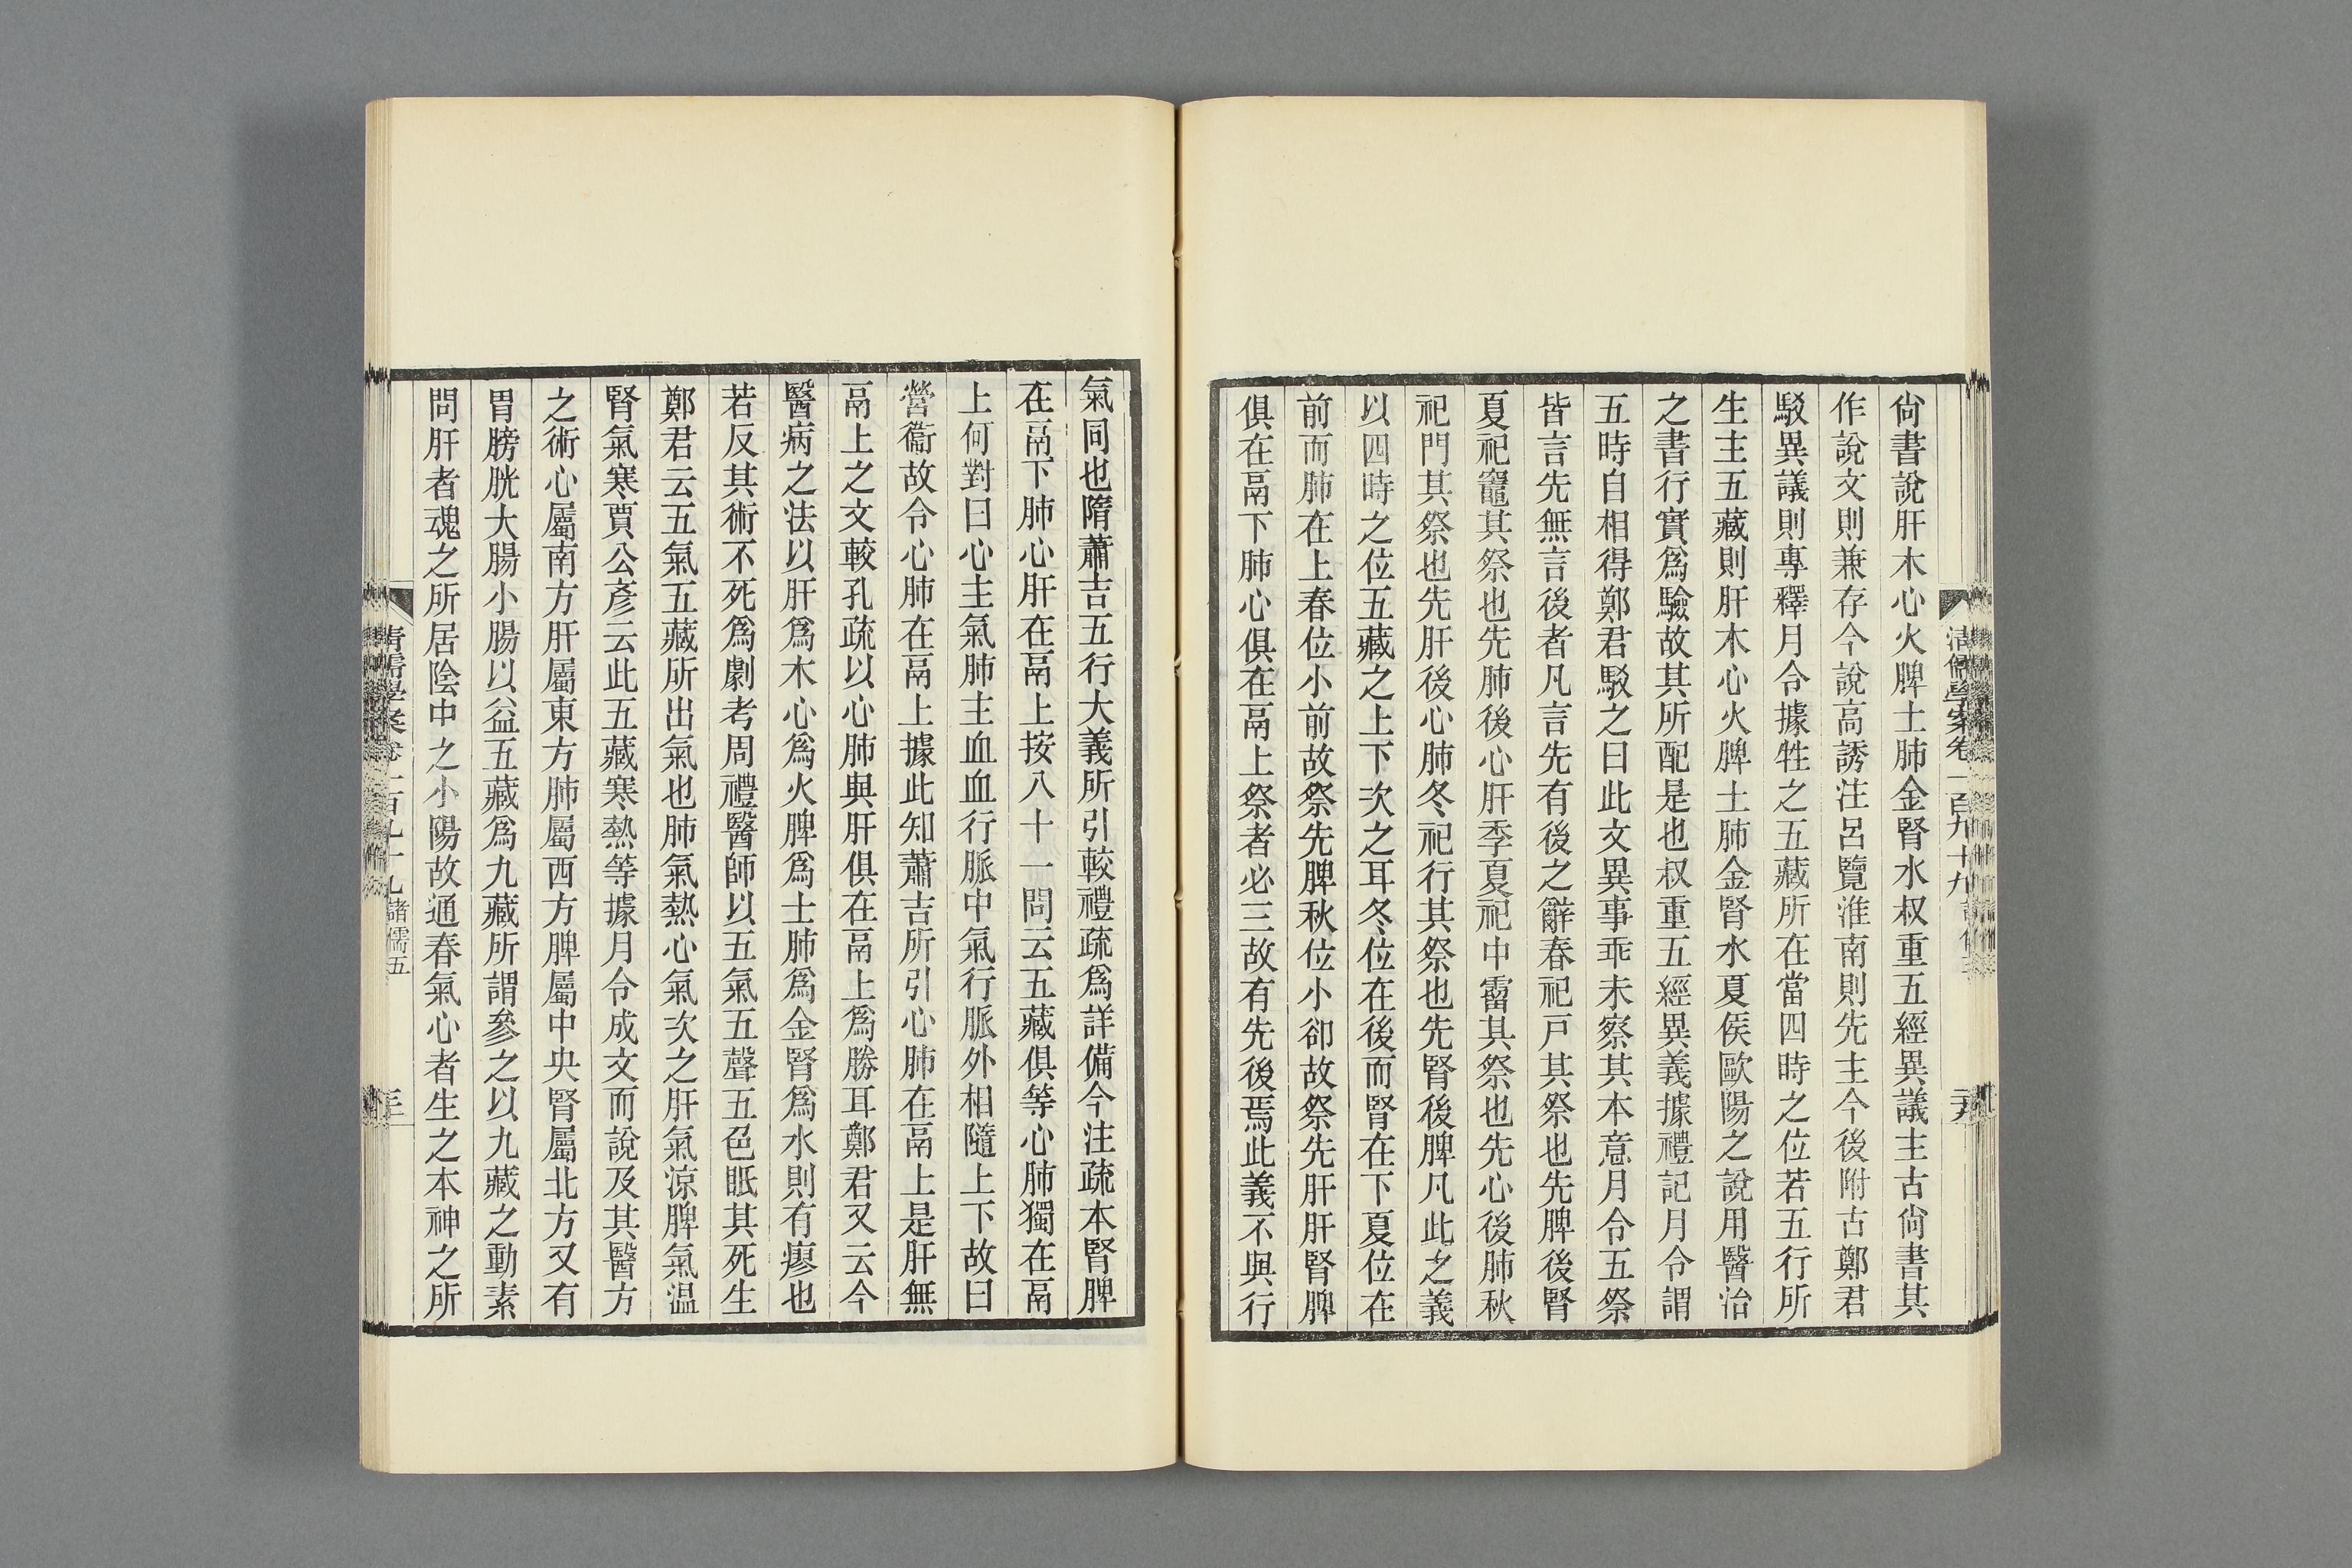 尙書說肝木心火脾土肺金腎水叔重五經異議主古尙書其
作說文則兼存今說高誘注呂覽淮南則先主今後附古鄭君
駁異議則專釋月令據牲之五藏所在當四時之位若五行所
生主五藏則肝木心火脾土肺金腎水夏矦歐陽之說用醫治
之書行實爲驗故其所配是也叔重五經異義據禮記月令謂
五時自相得鄭君駁之曰此文異事乖未察其本意月令五祭
皆言先無言後者凡言先有後之辭春祀戸其祭也先脾後腎
夏祀竈其祭也先肺後心肝季夏祀中霤其祭也先心後肺秋
祀門其祭也先肝後心肺冬祀行其祭也先腎後脾凡此之義
以四時之位五藏之上下次之耳冬位在後而腎在下夏位在
前而肺在上春位小前故祭先脾秋位小卻故祭先肝肝腎脾
俱在鬲下肺心俱在鬲上祭者必三故有先後焉此義不與行
清儒學案卷一百九十九
氣同也隋蕭吉五行大義所引較禮疏爲詳備今注疏本腎脾
在鬲下肺心肝在鬲上按八十一問云五藏俱等心肺獨在鬲
上何對曰心主氣肺主血血行脈中氣行脈外相隨上下故曰
營衞故令心肺在鬲上據此知蕭吉所引心肺在鬲上是肝無
鬲上之文較孔疏以心肺與肝俱在鬲上爲勝耳鄭君又云今
醫病之法以肝爲木心爲火脾爲土肺爲金腎爲水則有瘳也
若反其術不死爲劇考周禮醫師以五氣五聲五色眂其死生
鄭君云五氣五藏所出氣也肺氣熱心氣次之肝氣涼脾氣温
腎氣寒賈公彥云此五藏寒熱等據月令成文而說及其醫方
之術心屬南方肝屬東方肺屬西方脾屬中央腎屬北方又有
胃膀胱大腸小腸以益五藏爲九藏所謂參之以九藏之動素
問肝者魂之所居陰中之小陽故通春氣心者生之本神之所
清儒學案卷一百九十九 諸儒五